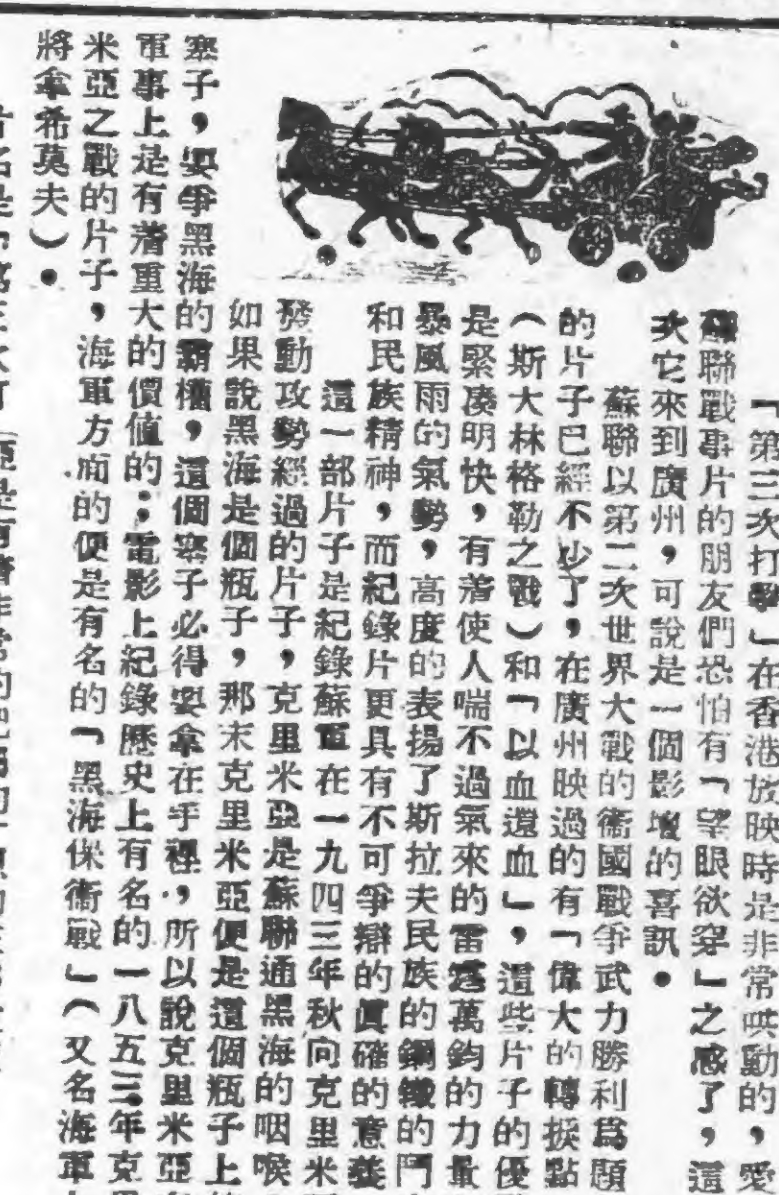 「第三次打擊」在香港放映時是非常哄動的，愛
蘇聯戰事片的朋友們恐怕有「望眼欲穿」之感了，這
次它來到廣州，可說是一個影壇的喜訊。
蘇聯以第二次世界大戰的衞國戰爭武力勝利爲題
的片子已經不少了，在廣州映過的有「偉大的轉捩點
（斯大林格勒之戰）和「以血還血」，這些片子的優
是緊凑明快，有着使人喘不過氣來的雷霆萬鈞的力量
暴風雨的氣勢，高度的表揚了斯拉夫民族的鋼鐵的鬥
和民族精神，而紀錄片更具有不可爭辯的眞確的意義
這一部片子是紀錄蘇軍在一九四三年秋向克里米
發動攻勢經過的片子，克里米亞是蘇聯通黑海的咽喉
如果說黑海是個瓶子，那末克里米亞便是這個瓶子上
塞子，要爭黑海的霸權，這個塞子必得要拿在手裡，所以說克里米亞
軍事上是有着重大的價值的；電影上紀錄歷史上有名的一八五三年克
米亞之戰的片子，海軍方面的便是有名的「黑海保衞戰」（又名海軍
將拿希莫夫）。